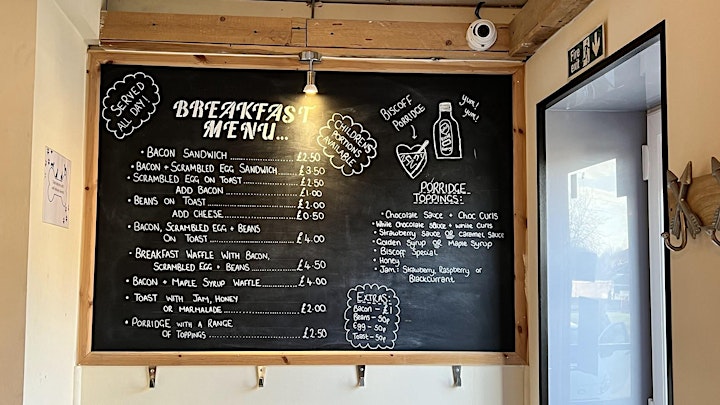 SERVED
ALL DAY!
BREAKFAST
MENU...
CHILDRENS
PORTIONS
AVAILABLE
• BACON SANDWICH ..................... £2.50
• BACON + SCRAMBLED EGG SANDWICH ....... £3.50
• SCRAMBLED EGG ON TOAST ................ £2.50
ADD BACON .................... £1.00
• BEANS ON TOAST ..................... £2.00
ADD CHEESE ................... £0.50
• BACON, SCRAMBLED EGG + BEANS
ON TOAST ..................... £4.00
• BREAKFAST WAFFLE WITH BACON,
SCRAMBLED EGG + BEANS ............ £4.50
• BACON + MAPLE SYRUP WAFFLE ......... £4.00
• TOAST WITH JAM, HONEY
OR MARMALADE ................. £2.00
• PORRIDGE WITH A RANGE
OF TOPPINGS .................. £2.50
BISCOFF
PORRIDGE
YUM!
YUM!
PORRIDGE
TOPPINGS:
• Chocolate Sauce + Choc Curls
• White Chocolate Sauce + White Curls
• Strawberry Sauce OR Caramel Sauce
• Golden Syrup OR Maple Syrup
• Biscoff Special
• Honey
• Jam: Strawberry, Raspberry or
Blackcurrant
EXTRAS:
Bacon - £1
Beans - 50p
Egg - 50p
Toast - 50p
Fire
exit